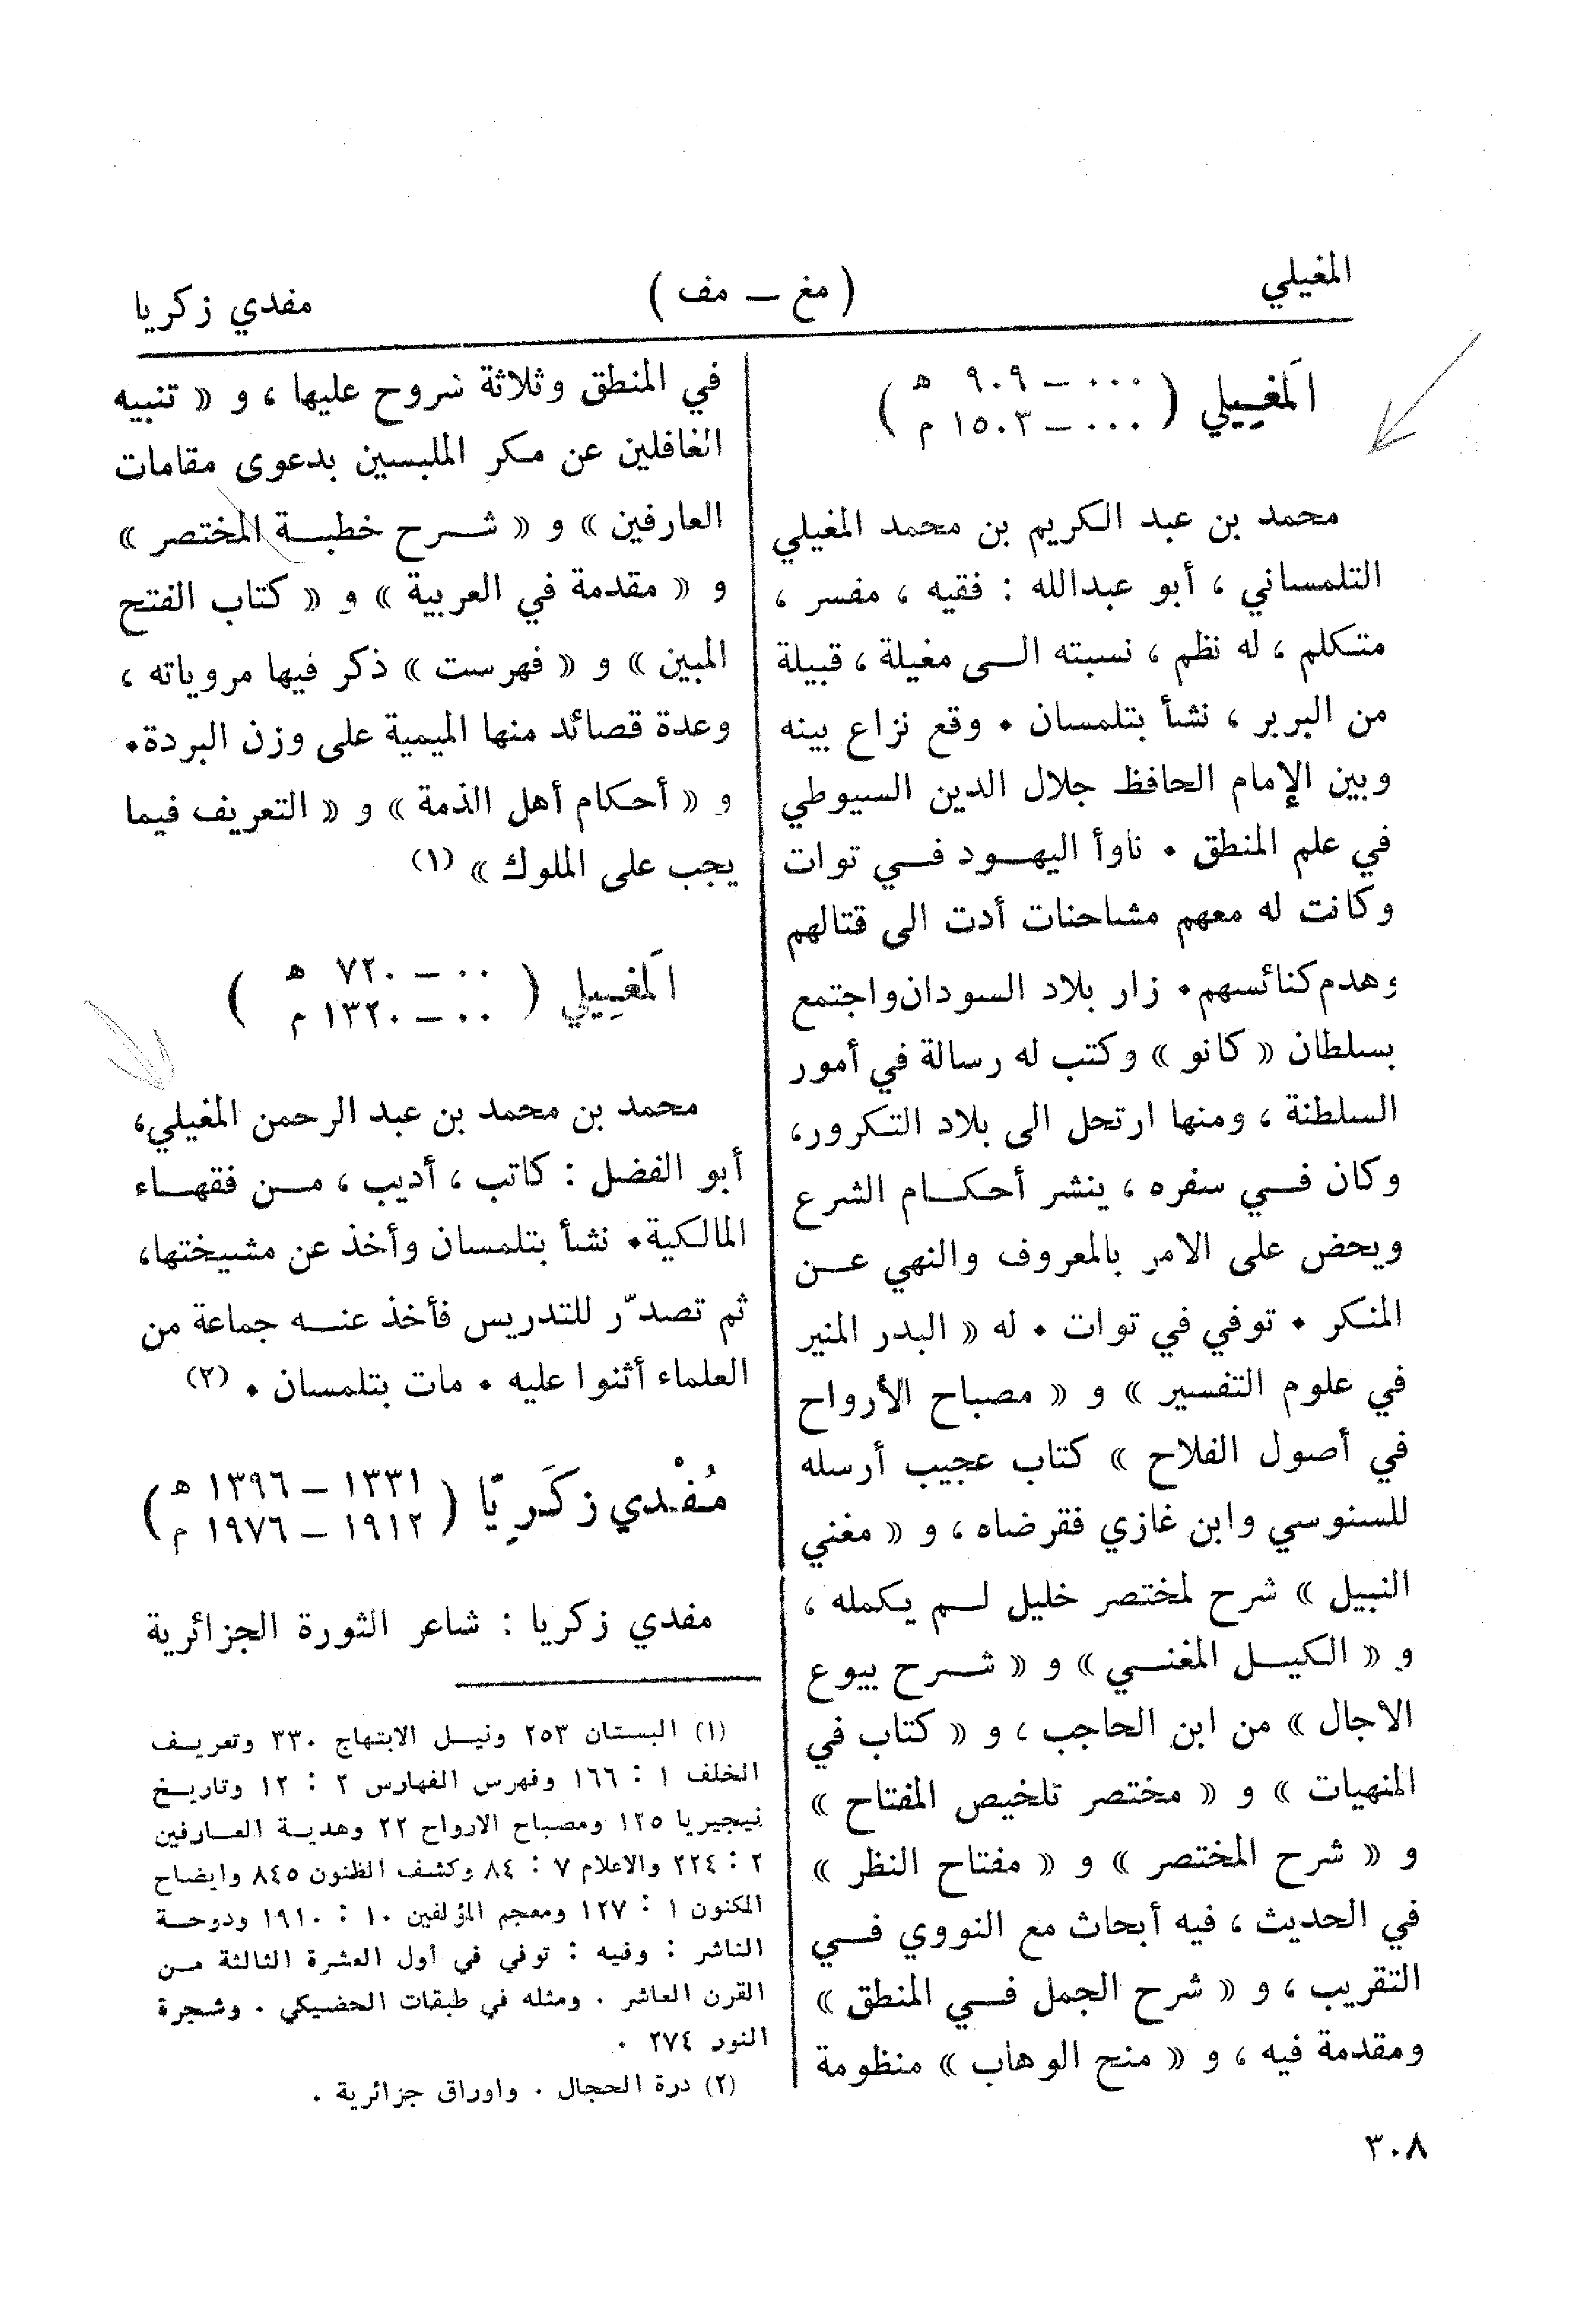 المغيلي
(مغ ــ مف)
مفدي زكريا
المَغِيلي (٠٠٠ – ٩٠٩ هـ
٠٠٠ – ١٥٠٣ م)
محمد بن عبد الكريم بن محمد المغيلي
التلمساني ، أبو عبدالله : فقيه ، مفسر ،
متكلم ، له نظم ، نسبته الى مغيلة ، قبيلة
من البربر ، نشأ بتلمسان . وقع نزاع بينه
وبين الإمام الحافظ جلال الدين السيوطي
في علم المنطق . ناوأ اليهود في توات
وكانت له معهم مشاحنات أدت الى قتالهم
وهدم كنائسهم . زار بلاد السودان واجتمع
بسلطان « كانو » وكتب له رسالة في أمور
السلطنة ، ومنها ارتحل الى بلاد التكرور،
وكان في سفره ، ينشر أحكام الشرع
ويحض على الامر بالمعروف والنهي عن
المنكر . توفي في توات . له « البدر المنير
في علوم التفسير » و « مصباح الأرواح
في أصول الفلاح » كتاب عجيب أرسله
للسنوسي وابن غازي فقرضاه ، و « مغني
النبيل » شرح لمختصر خليل لم يكمله ،
و « الكيل المغني » و « شرح بيوع
الاجال » من ابن الحاجب ، و « كتاب في
المنهيات » و « مختصر تلخيص المفتاح »
و « شرح المختصر » و « مفتاح النظر »
في الحديث ، فيه أبحاث مع النووي في
التقريب ، و « شرح الجمل في المنطق »
ومقدمة فيه ، و « منح الوهاب » منظومة
في المنطق وثلاثة شروح عليها ، و « تنبيه
الغافلين عن مكر الملبسين بدعوى مقامات
العارفين » و « شرح خطبة المختصر »
و « مقدمة في العربية » و « كتاب الفتح
المبين » و « فهرست » ذكر فيها مروياته ،
وعدة قصائد منها الميمية على وزن البردة.
و « أحكام أهل الذمة » و « التعريف فيما
يجب على الملوك » (١)
المَغِيلي (٠٠ – ٧٢٠ هـ
٠٠ – ١٣٢٠ م)
محمد بن محمد بن عبد الرحمن المغيلي،
أبو الفضل : كاتب ، أديب ، من فقهاء
المالكية. نشأ بتلمسان وأخذ عن مشيختها،
ثم تصدّر للتدريس فأخذ عنه جماعة من
العلماء أثنوا عليه . مات بتلمسان . (٢)
مُفْدي زكَرِيّا (١٣٣١ – ١٣٩٦ هـ
١٩١٢ – ١٩٧٦ م)
مفدي زكريا : شاعر الثورة الجزائرية
(١) البستان ٢٥٣ ونيل الابتهاج ٣٣٠ وتعريف
الخلف ١ : ١٦٦ وفهرس الفهارس ٢ : ١٢ وتاريخ
نيجيريا ١٢٥ ومصباح الارواح ٢٢ وهدية العارفين
٢ : ٢٢٤ والاعلام ٧ : ٨٤ وكشف الظنون ٨٤٥ وايضاح
المكنون ١ : ١٢٧ ومعجم المؤلفين ١٠ : ١٩١٠ ودوحة
الناشر : وفيه : توفي في أول العشرة الثالثة من
القرن العاشر . ومثله في طبقات الحضيكي . وشجرة
النور ٢٧٤ .
(٢) درة الحجال . واوراق جزائرية .
٣٠٨